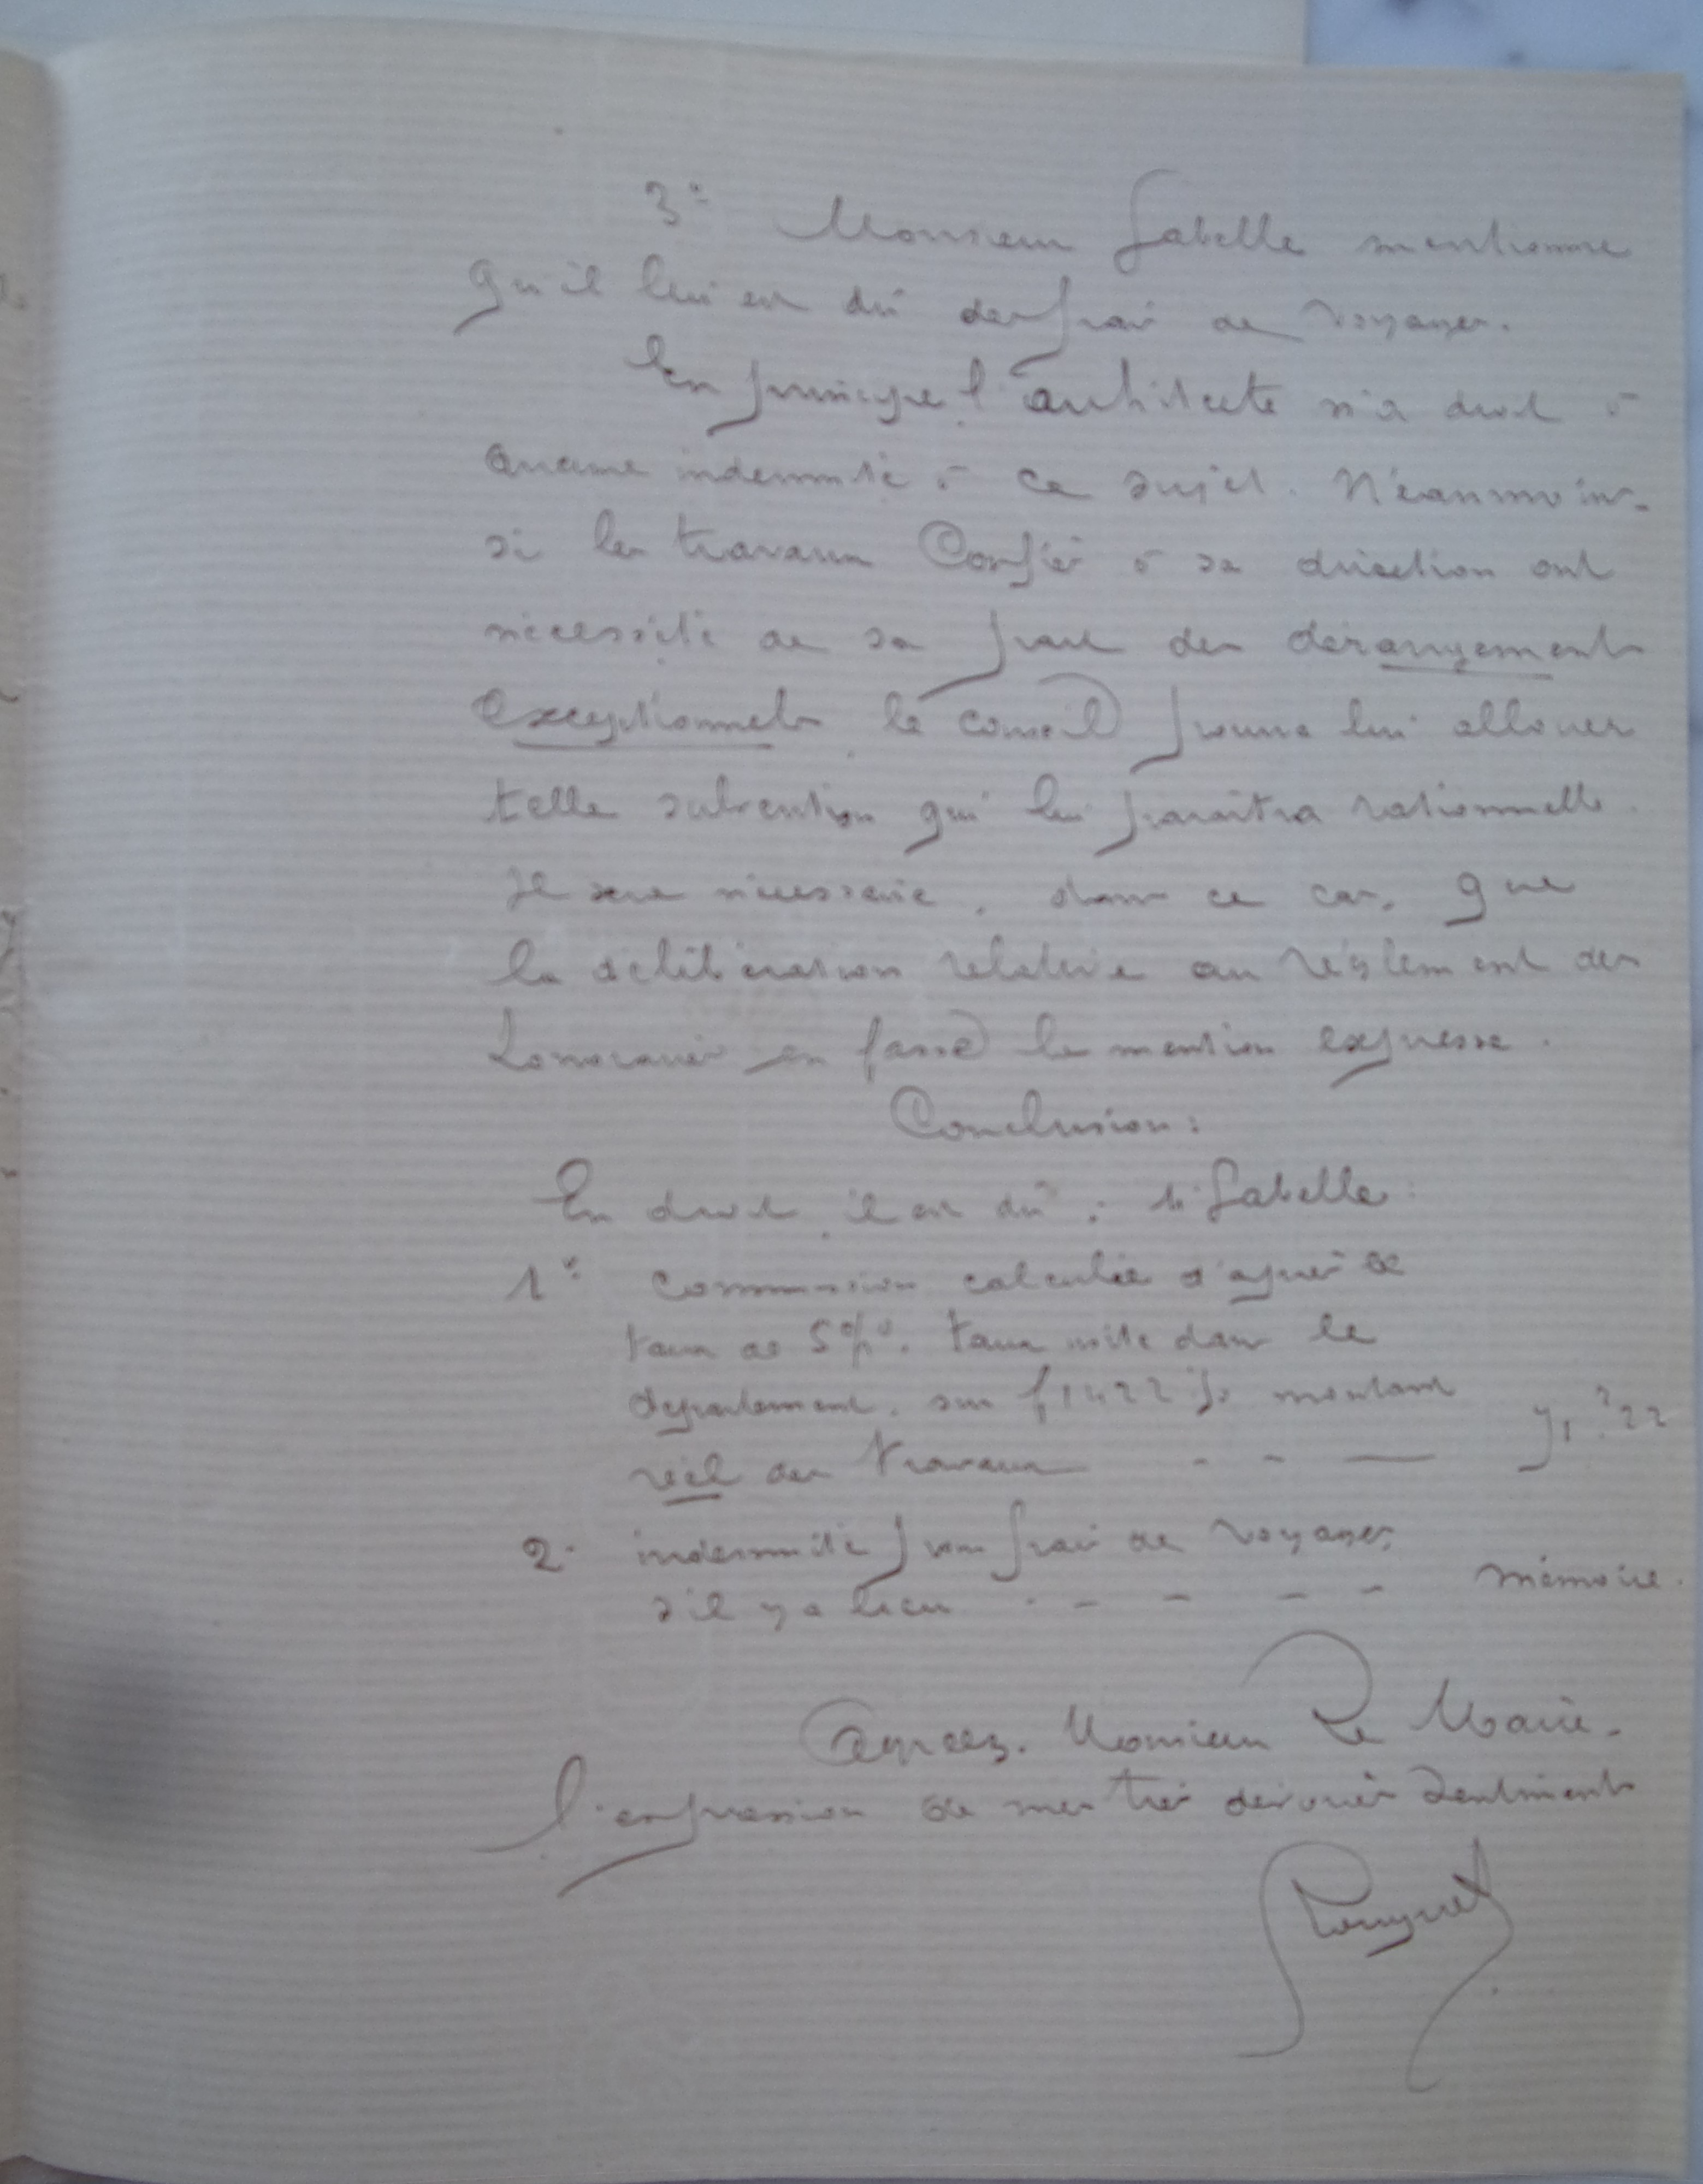 3° Monsieur Labelle mentionne
qu'il lui est dû des frais de voyages.
En principe l'architecte n'a droit à
aucune indemnité à ce sujet. Néanmoins
si les travaux confiés à sa direction ont
nécessité de sa part des dérangements
exceptionnels le conseil pourra lui allouer
telle subvention qui lui paraîtra rationnelle.
Il sera nécessaire, dans ce cas, que
la délibération relative au règlement des
honoraires en fasse la mention expresse.
Conclusion:
En droit, il est dû à M. Labelle:
1° commission calculée d'après le
taux de 5%, taux usité dans le
département, sur f 1422 montant
réel des travaux - - —
2° indemnité pour frais de voyages,
s'il y a lieu - - - - - mémoire.
Agréez, Monsieur Le Maire,
l'expression de mes très dévoués sentiments